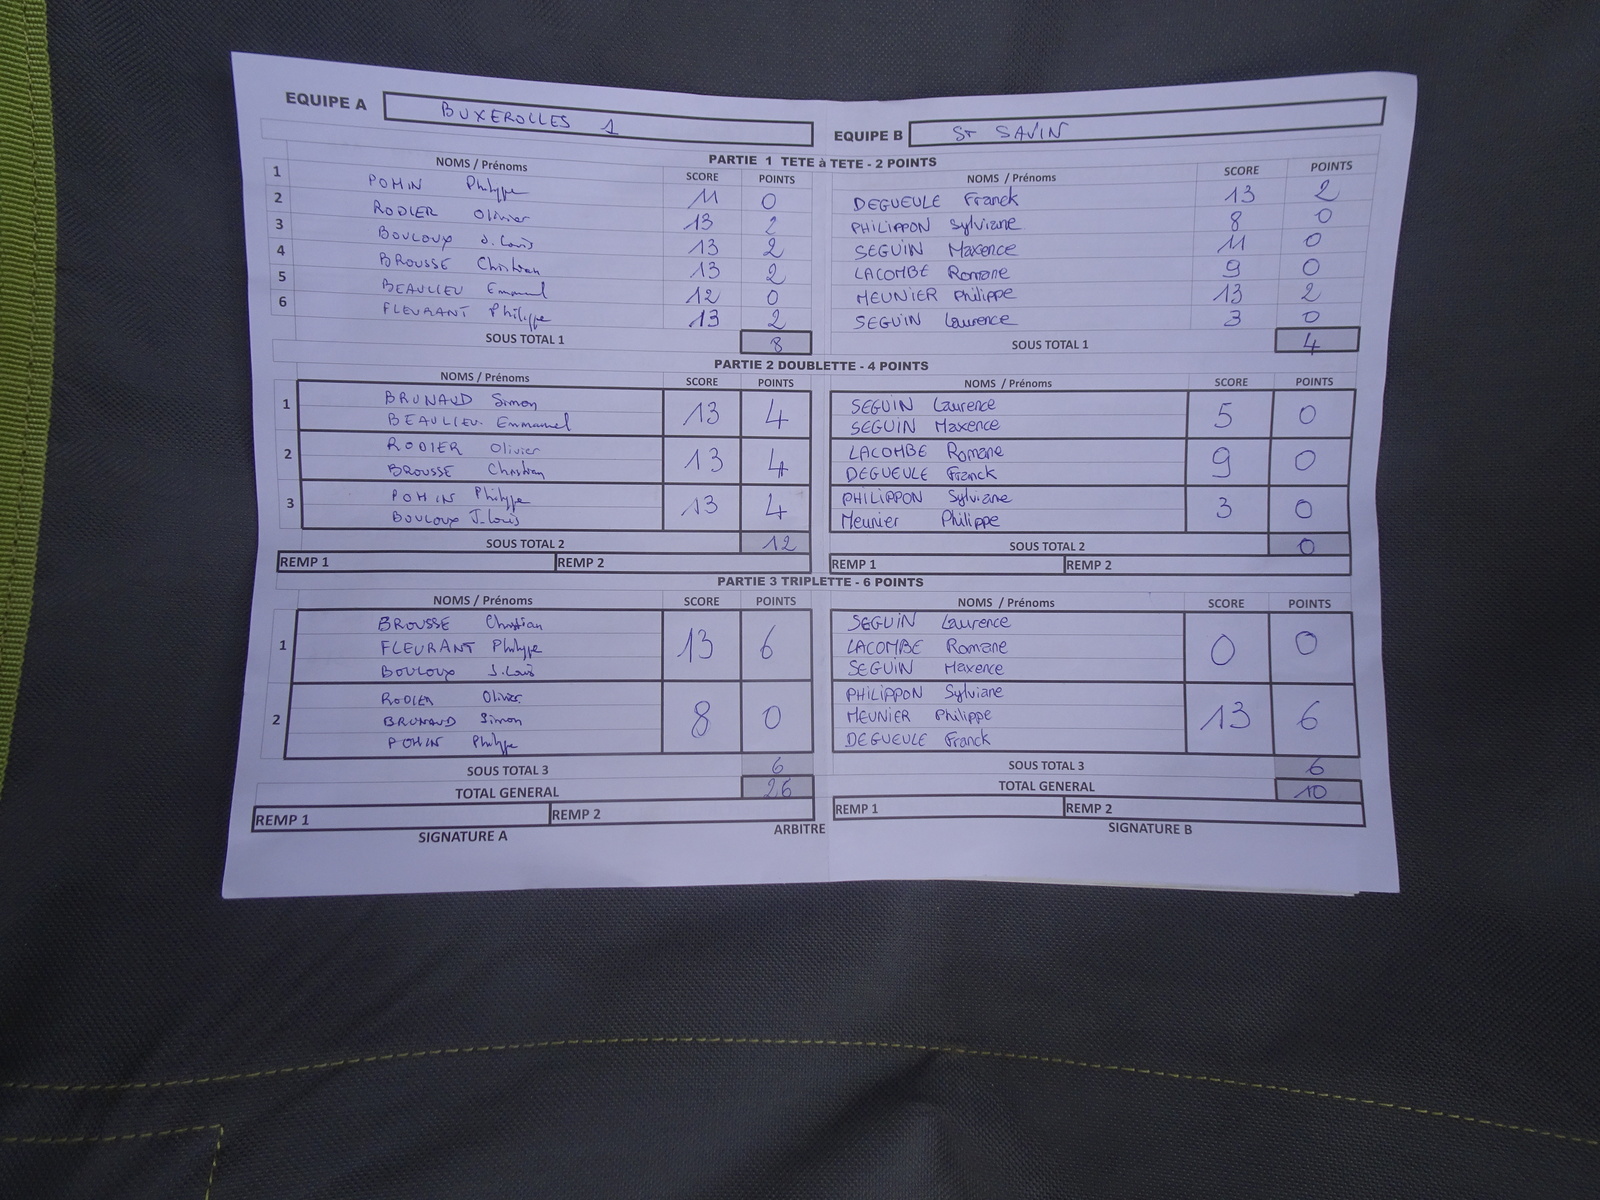 EQUIPE A BUXEROLLES 1 EQUIPE B ST SAVIN
PARTIE 1 TETE à TETE - 2 POINTS
NOMS / Prénoms SCORE POINTS NOMS / Prénoms SCORE POINTS
1 POHIN Philippe 11 0 DEGUEULE Franck 13 2
2 RODIER Olivier 13 2 PHILIPPON Sylviane 8 0
3 BOULOUX J. Louis 13 2 SEGUIN Maxence 11 0
4 BROUSSE Christian 13 2 LACOMBE Romane 9 0
5 BEAULIEU Emmanuel 12 0 MEUNIER Philippe 13 2
6 FLEURANT Philippe 13 2 SEGUIN Laurence 3 0
SOUS TOTAL 1 8 SOUS TOTAL 1 4
PARTIE 2 DOUBLETTE - 4 POINTS
NOMS / Prénoms SCORE POINTS NOMS / Prénoms SCORE POINTS
1 BRUNAUD Simon 13 4 SEGUIN Laurence 5 0
BEAULIEU Emmanuel SEGUIN Maxence
2 RODIER Olivier 13 4 LACOMBE Romane 9 0
BROUSSE Christian DEGUEULE Franck
3 POHIN Philippe 13 4 PHILIPPON Sylviane 3 0
BOULOUX J.Louis Meunier Philippe
SOUS TOTAL 2 12 SOUS TOTAL 2 0
REMP 1 REMP 2 REMP 1 REMP 2
PARTIE 3 TRIPLETTE - 6 POINTS
NOMS / Prénoms SCORE POINTS NOMS / Prénoms SCORE POINTS
BROUSSE Christian SEGUIN Laurence
1 FLEURANT Philippe 13 6 LACOMBE Romane 0 0
BOULOUX J.Louis SEGUIN Maxence
RODIER Olivier PHILIPPON Sylviane
2 BRUNAUD Simon 8 0 MEUNIER Philippe 13 6
POHIN Philippe DEGUEULE Franck
SOUS TOTAL 3 6 SOUS TOTAL 3 6
TOTAL GENERAL 26 TOTAL GENERAL 10
REMP 1 REMP 2 REMP 1 REMP 2
SIGNATURE A ARBITRE SIGNATURE B